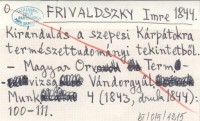 FRIVALDSZKY Imre 1844.
Kirándulás a szepesi Kárpátokra
természettudományi tekintetből.
- Magyar Orv Term
vizsg Vándorgyűl
Munk 4 (1843, druk 1844):
100-111.